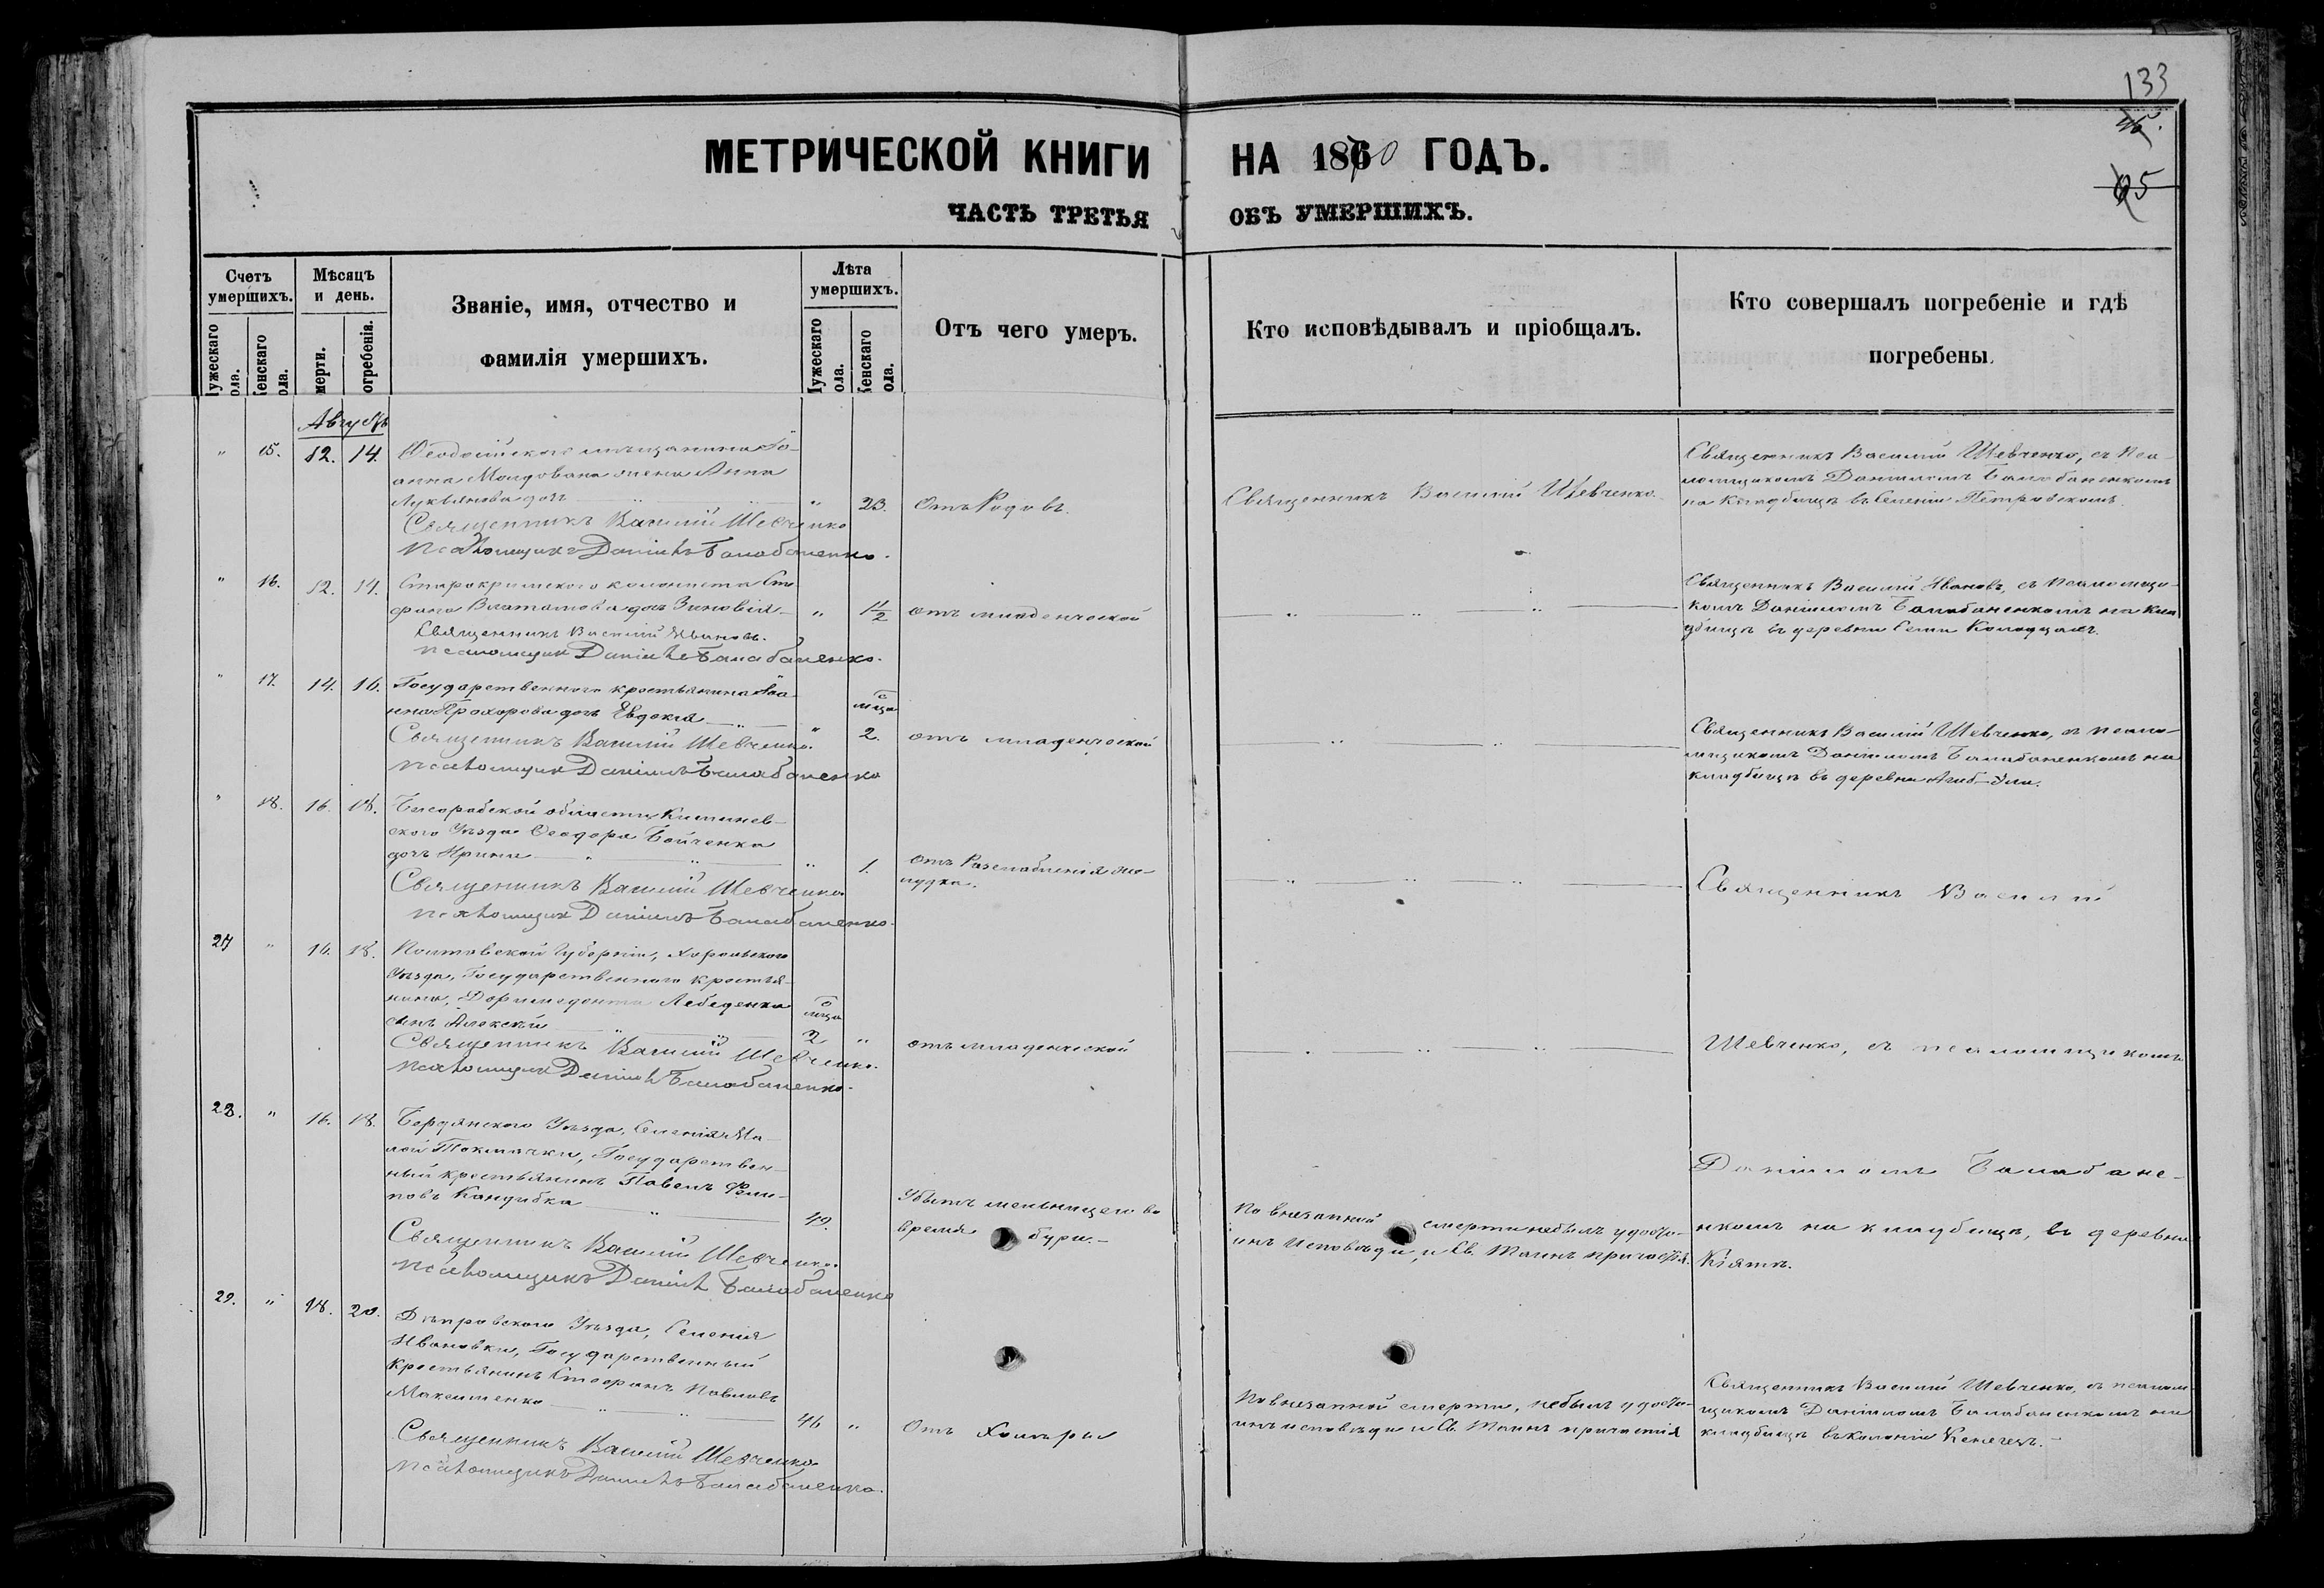 133
95
МЕТРИЧЕСКОЙ КНИГИ НА 1870 ГОДЪ.
ЧАСТЬ ТРЕТЬЯ ОБЪ УМЕРШИХЪ.
Счетъ умершихъ.
ужескаго ола.
енскаго ола.
Мѣсяцъ и день.
мерти.
огребенія.
Званіе, имя, отчество и
фамилія умершихъ.
Лѣта умершихъ.
ужескаго ола.
енскаго ола.
Отъ чего умеръ.
Кто исповѣдывалъ и пріобщалъ.
Кто совершалъ погребеніе и гдѣ
погребены.
Августъ
" 15. 12. 14. Феодосійскаго мѣщанина Іо-
анна Молдована жена Анна
Лукьянова дочь " 23. Отъ Родовъ.
Священникъ Василій Шевченко
Псаломщикъ Даніилъ Балабаненко.
Священникъ Василій Шевченко.
Священникъ Василій Шевченко, съ Пса-
ломщикомъ Даніиломъ Балабаненкомъ
на Кладбищѣ въ Селеніи Петровскомъ.
" 16. 12. 14. Старокрымскаго колониста Сте
фана дочь Зиновія " 1/2 отъ младенческой
Священникъ Василій Ивановъ.
Псаломщикъ Даніилъ Балабаненко.
Священникъ Василій Ивановъ, съ Псаломщи-
комъ Даніиломъ Балабаненкомъ на Кла
дбищѣ въ деревни Семи Колодцахъ.
" 17. 14. 16. Государственнаго крестьянина Іоа-
нна Прохорова дочь Евдокія " мца 2. отъ младенческой
Священникъ Василій Шевченко.
Псаломщикъ Даніилъ Балабаненко
Священникъ Василій Шевченко, съ псало-
мщикомъ Даніиломъ Балабаненкомъ на
кладбищѣ въ деревни
" 18. 16. 18. Бесарабской области Кишинев-
скаго Уѣзда Феодора Бойченка
дочь Ирина " 1. отъ Разслабленія же-
лудка.
Священникъ Василій Шевченко.
Псаломщикъ Даніилъ Балабаненко.
Священникъ Василій
27 " 16. 18. Полтавской Губерніи, Хорольскаго
Уѣзда, Государственнаго крестья-
нина, Доримедонта Лебеденка
сынъ Алексѣй мца 2 " отъ младенческой
Священникъ Василій Шевченко.
Псаломщикъ Даніилъ Балабаненко.
Шевченко, съ псаломщикомъ
28. " 16. 18. Бердянскаго Уѣзда, Селенія Ма-
лой Токмачки, Государствен-
ный крестьянинъ Павелъ Фили-
повъ Кандибка 49. Убитъ мельницею во
время бури.
Священникъ Василій Шевченко.
Псаломщикъ Даніилъ Балабаненко
По внезапной смерти небылъ удосто-
инъ Исповѣди, и Св. Таинъ причастія.
Даніиломъ Балабане-
нкомъ на кладбищѣ, въ деревни
Кіятъ.
29. " 18. 20. Днѣпровскаго Уѣзда, Селенія
Ивановки, Государственный
Крестьянинъ Стефанъ Павловъ
Максименко 46 " Отъ Холеры
Священникъ Василій Шевченко.
Псаломщикъ Даніилъ Балабаненко.
По внезапной смерти, небылъ удосто-
инъ исповѣди и Св. Таинъ причастія
Священникъ Василій Шевченко, съ псалом-
щикомъ Даніиломъ Балабаненкомъ на
кладбищѣ въ колоніи Кенегезъ.